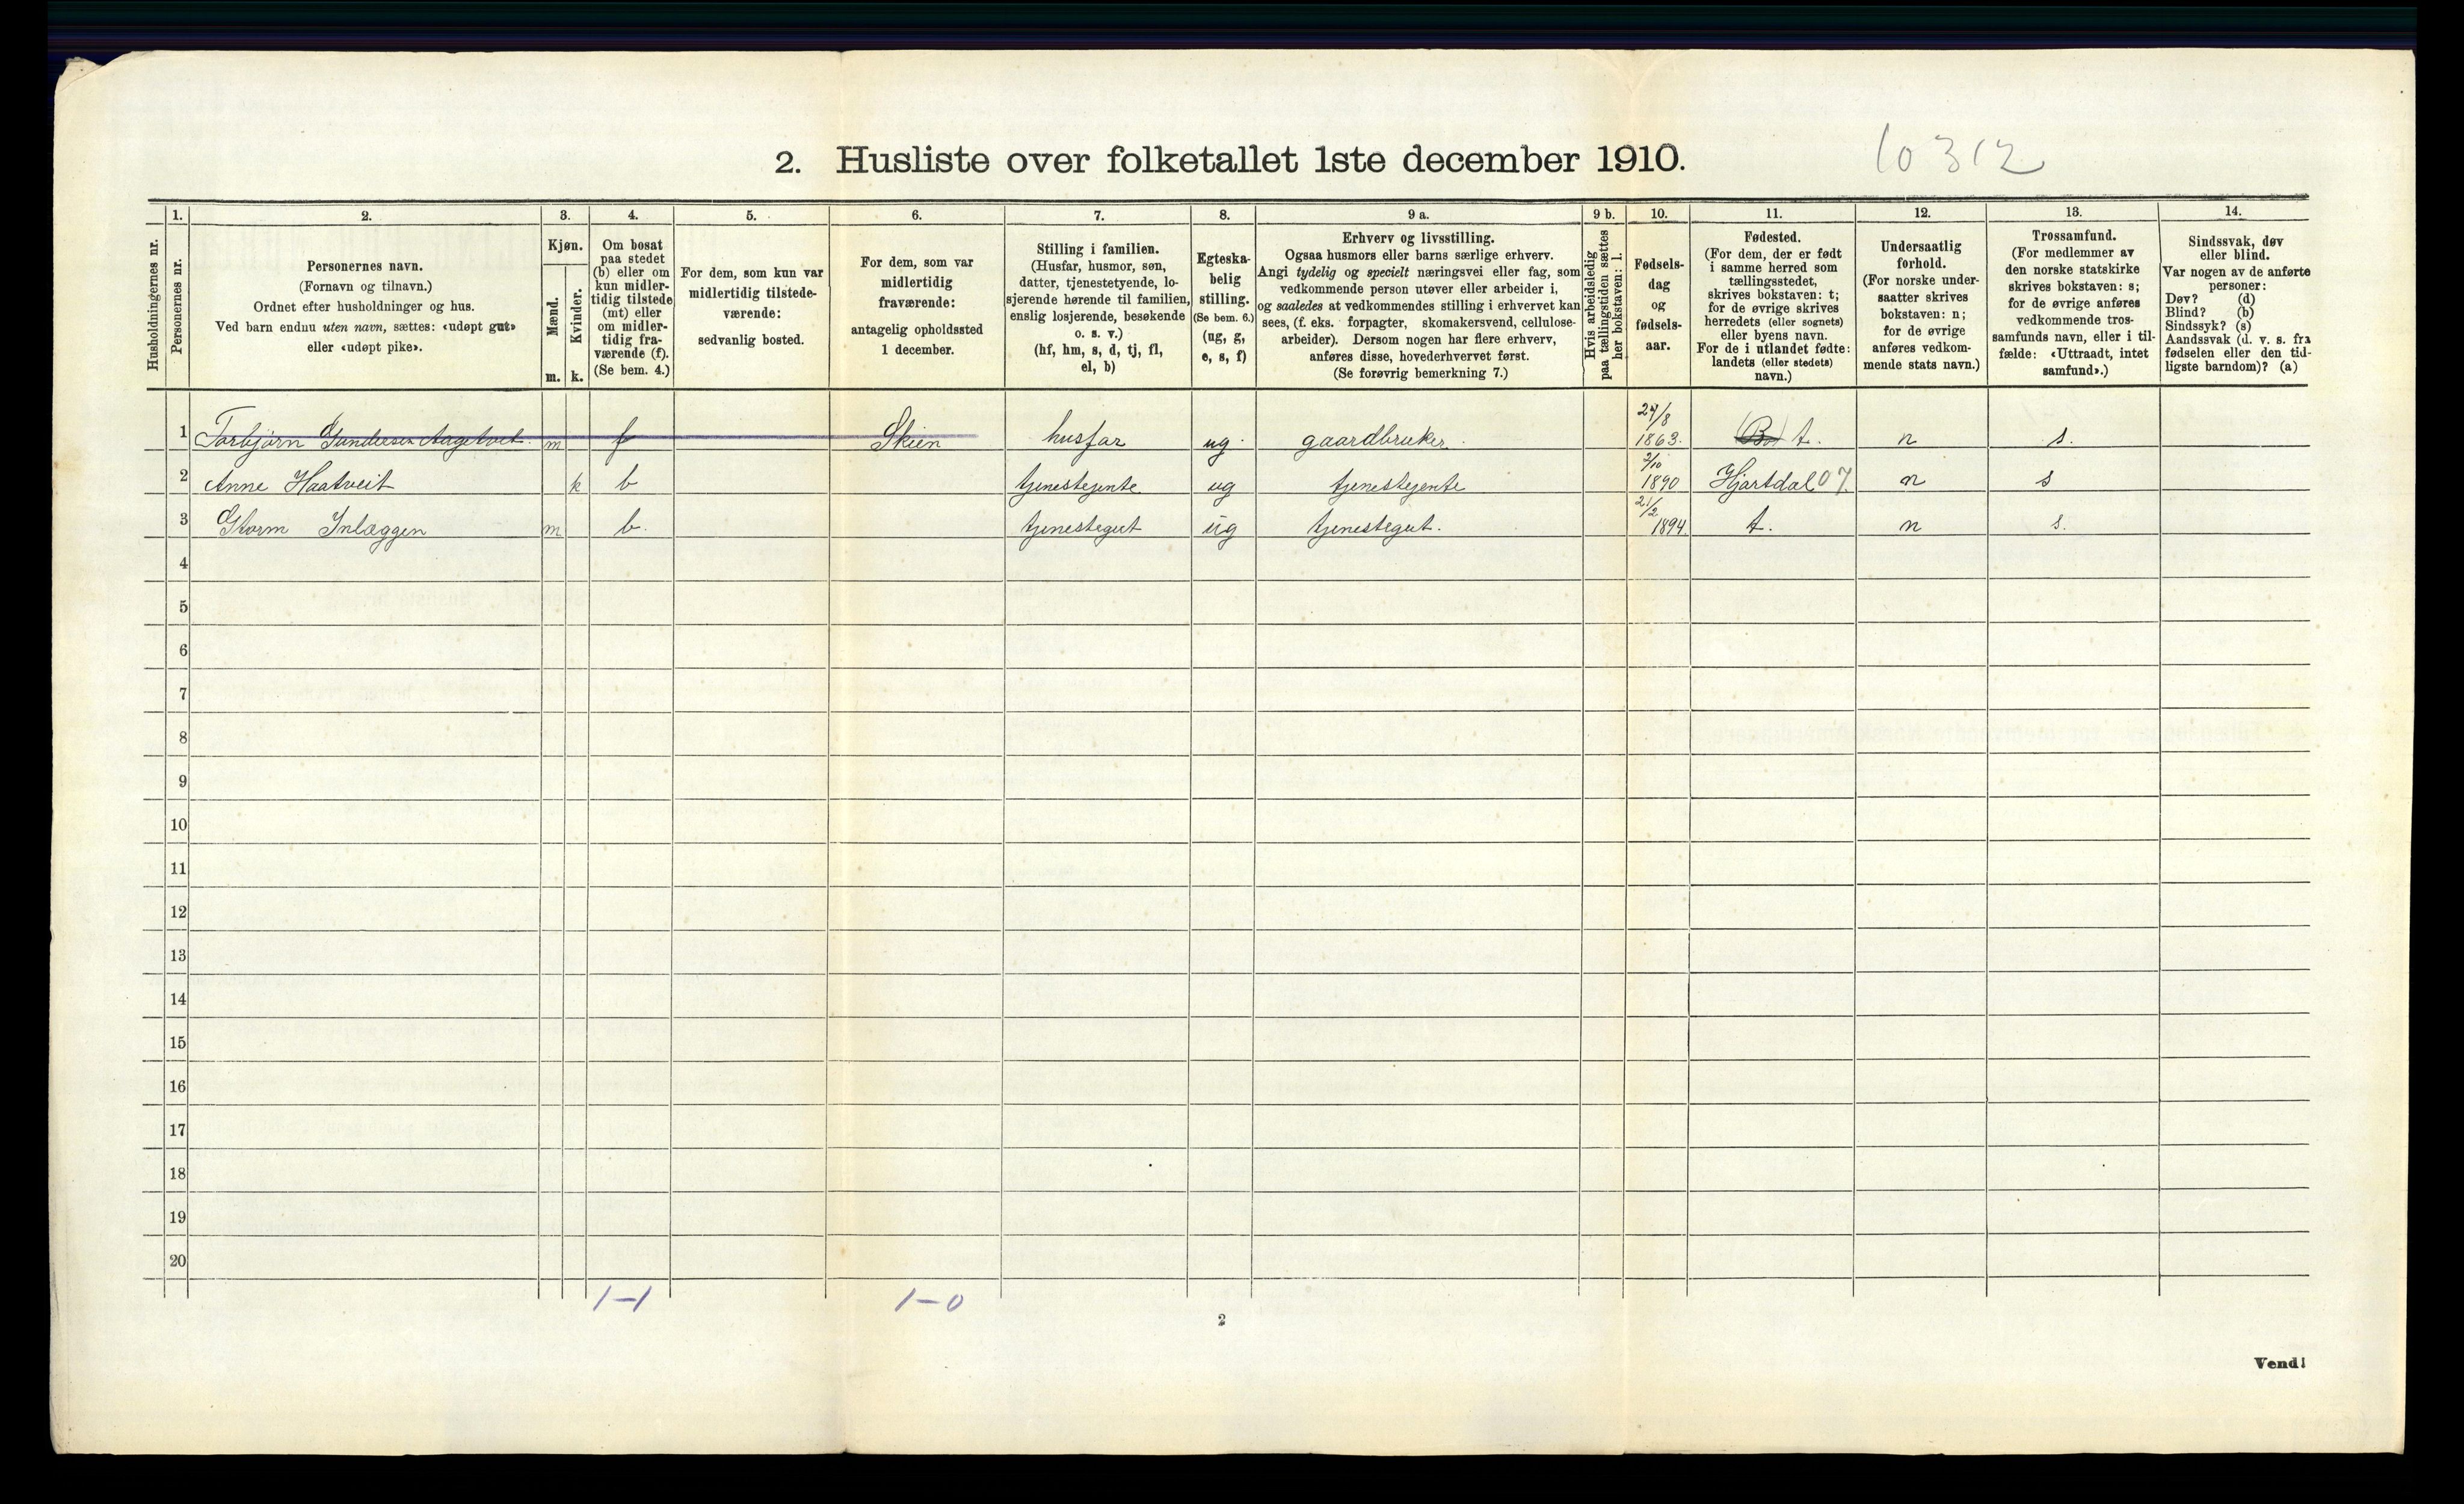 2. Husliste over folketallet 1ste december 1910.
10 312
Husholdningernes nr.
1.
Personernes nr.
2.
Personernes navn.
(Fornavn og tilnavn.)
Ordnet efter husholdninger og hus.
Ved barn endnu uten navn, sættes: «udøpt gut»
eller «udøpt pike».
3.
Kjøn.
Mænd.
Kvinder.
m. k.
4.
Om bosat
paa stedet
(b) eller om
kun midler-
tidig tilstede
(mt) eller
om midler-
tidig fra-
værende (f).
(Se bem. 4.)
5.
For dem, som kun var
midlertidig tilstede-
værende:
sedvanlig bosted.
6.
For dem, som var
midlertidig
fraværende:
antagelig opholdssted
1 december.
7.
Stilling i familien.
(Husfar, husmor, søn,
datter, tjenestetyende, lo-
sjerende hørende til familien,
enslig losjerende, besøkende
o. s. v.)
(hf, hm, s, d, tj, fl,
el, b)
8.
Egteska-
belig
stilling.
(Se bem. 6.)
(ug, g,
e, s, f)
9 a.
Erhverv og livsstilling.
Ogsaa husmors eller barns særlige erhverv.
Angi tydelig og specielt næringsvei eller fag, som
vedkommende person utøver eller arbeider i,
og saaledes at vedkommendes stilling i erhvervet kan
sees, (f. eks. forpagter, skomakersvend, cellulose-
arbeider). Dersom nogen har flere erhverv,
anføres disse, hovederhvervet først.
(Se forøvrig bemerkning 7.)
9 b.
Hvis arbeidsledig
paa tællingstiden sættes
her bokstaven: l.
10.
Fødsels-
dag
og
fødsels-
aar.
11.
Fødested.
(For dem, der er født
i samme herred som
tællingsstedet,
skrives bokstaven: t;
for de øvrige skrives
herredets (eller sognets)
eller byens navn.
For de i utlandet fødte:
landets (eller stedets)
navn.)
12.
Undersaatlig
forhold.
(For norske under-
saatter skrives
bokstaven: n;
for de øvrige
anføres vedkom-
mende stats navn.)
13.
Trossamfund.
(For medlemmer av
den norske statskirke
skrives bokstaven: s;
for de øvrige anføres
vedkommende tros-
samfunds navn, eller i til-
fælde: «Uttraadt, intet
samfund».)
14.
Sindssvak, døv
eller blind.
Var nogen av de anførte
personer:
Døv? (d)
Blind? (b)
Sindssyk? (s)
Aandssvak (d. v. s. fra
fødselen eller den tid-
ligste barndom)? (a)
1 Torbjørn Gundersen Aagetveit. m f Skien husfar ug. gaardbruker. 24/8 1863. (Bø) t. n s.
2 Anne Haatveit k b tjenestejente ug tjenestejente 2/10 1890 Hjartdal 07. n s
3 Storm Inlæggen m b. tjenestegut ug tjenestegut. 21/2 1894. t. n s.
4
5
6
7
8
9
10
11
12
13
14
15
16
17
18
19
20
1-1 1-0
2
Vend!